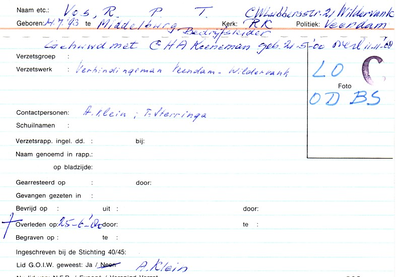 Naam etc.: Vos, R. P. T. Wildervank
Geboren: te Middelburg Kerk: RK Politiek: Veendam
Bedrijfsleider
Gehuwd met CHA Koeneman geb.
Verzetsgroep :
Verzetswerk : Verbindingsman Veendam-Wildervank
LO
OD BS
Foto
Contactpersonen: A. Klein ; T. Sterringa
Schuilnamen :
Verzetsrapp. ingel. dd. : bij:
Naam genoemd in rapp.:
op bladzijde:
Gearresteerd op : door:
Gevangen gezeten in :
Bevrijd op : uit : door:
Overleden op: te : door:
Begraven op : te :
Ingeschreven bij de Stichting 40/45:
Lid G.O.I.W. geweest: Ja / Neen A. Klein